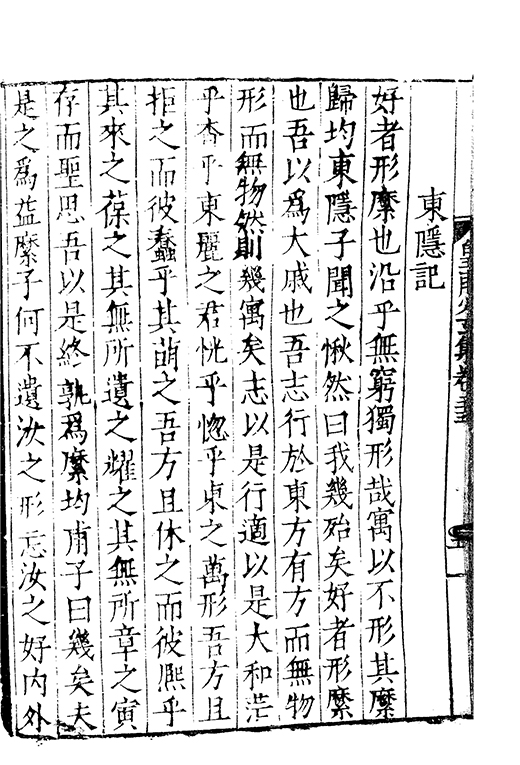 東隱記
好者形縻也沿乎無窮獨形哉寓以不形其縻
歸均東隱子聞之愀然曰我幾殆矣好者形縻
也吾以為大戚也吾志行於東方有方而無物
形而無物然則幾寓矣志以是行適以是大和茫
乎奔乎東麗之君恍乎惚乎東之萬形吾方且
拒之而彼蠢乎其萌之吾方且休之而彼熈乎
其來之葆之其無所遺之耀之其無所章之寅
存而聖思吾以是終孰為縻均甫子曰幾矣夫
是之為益縻子何不遺汝之形忘汝之好內外